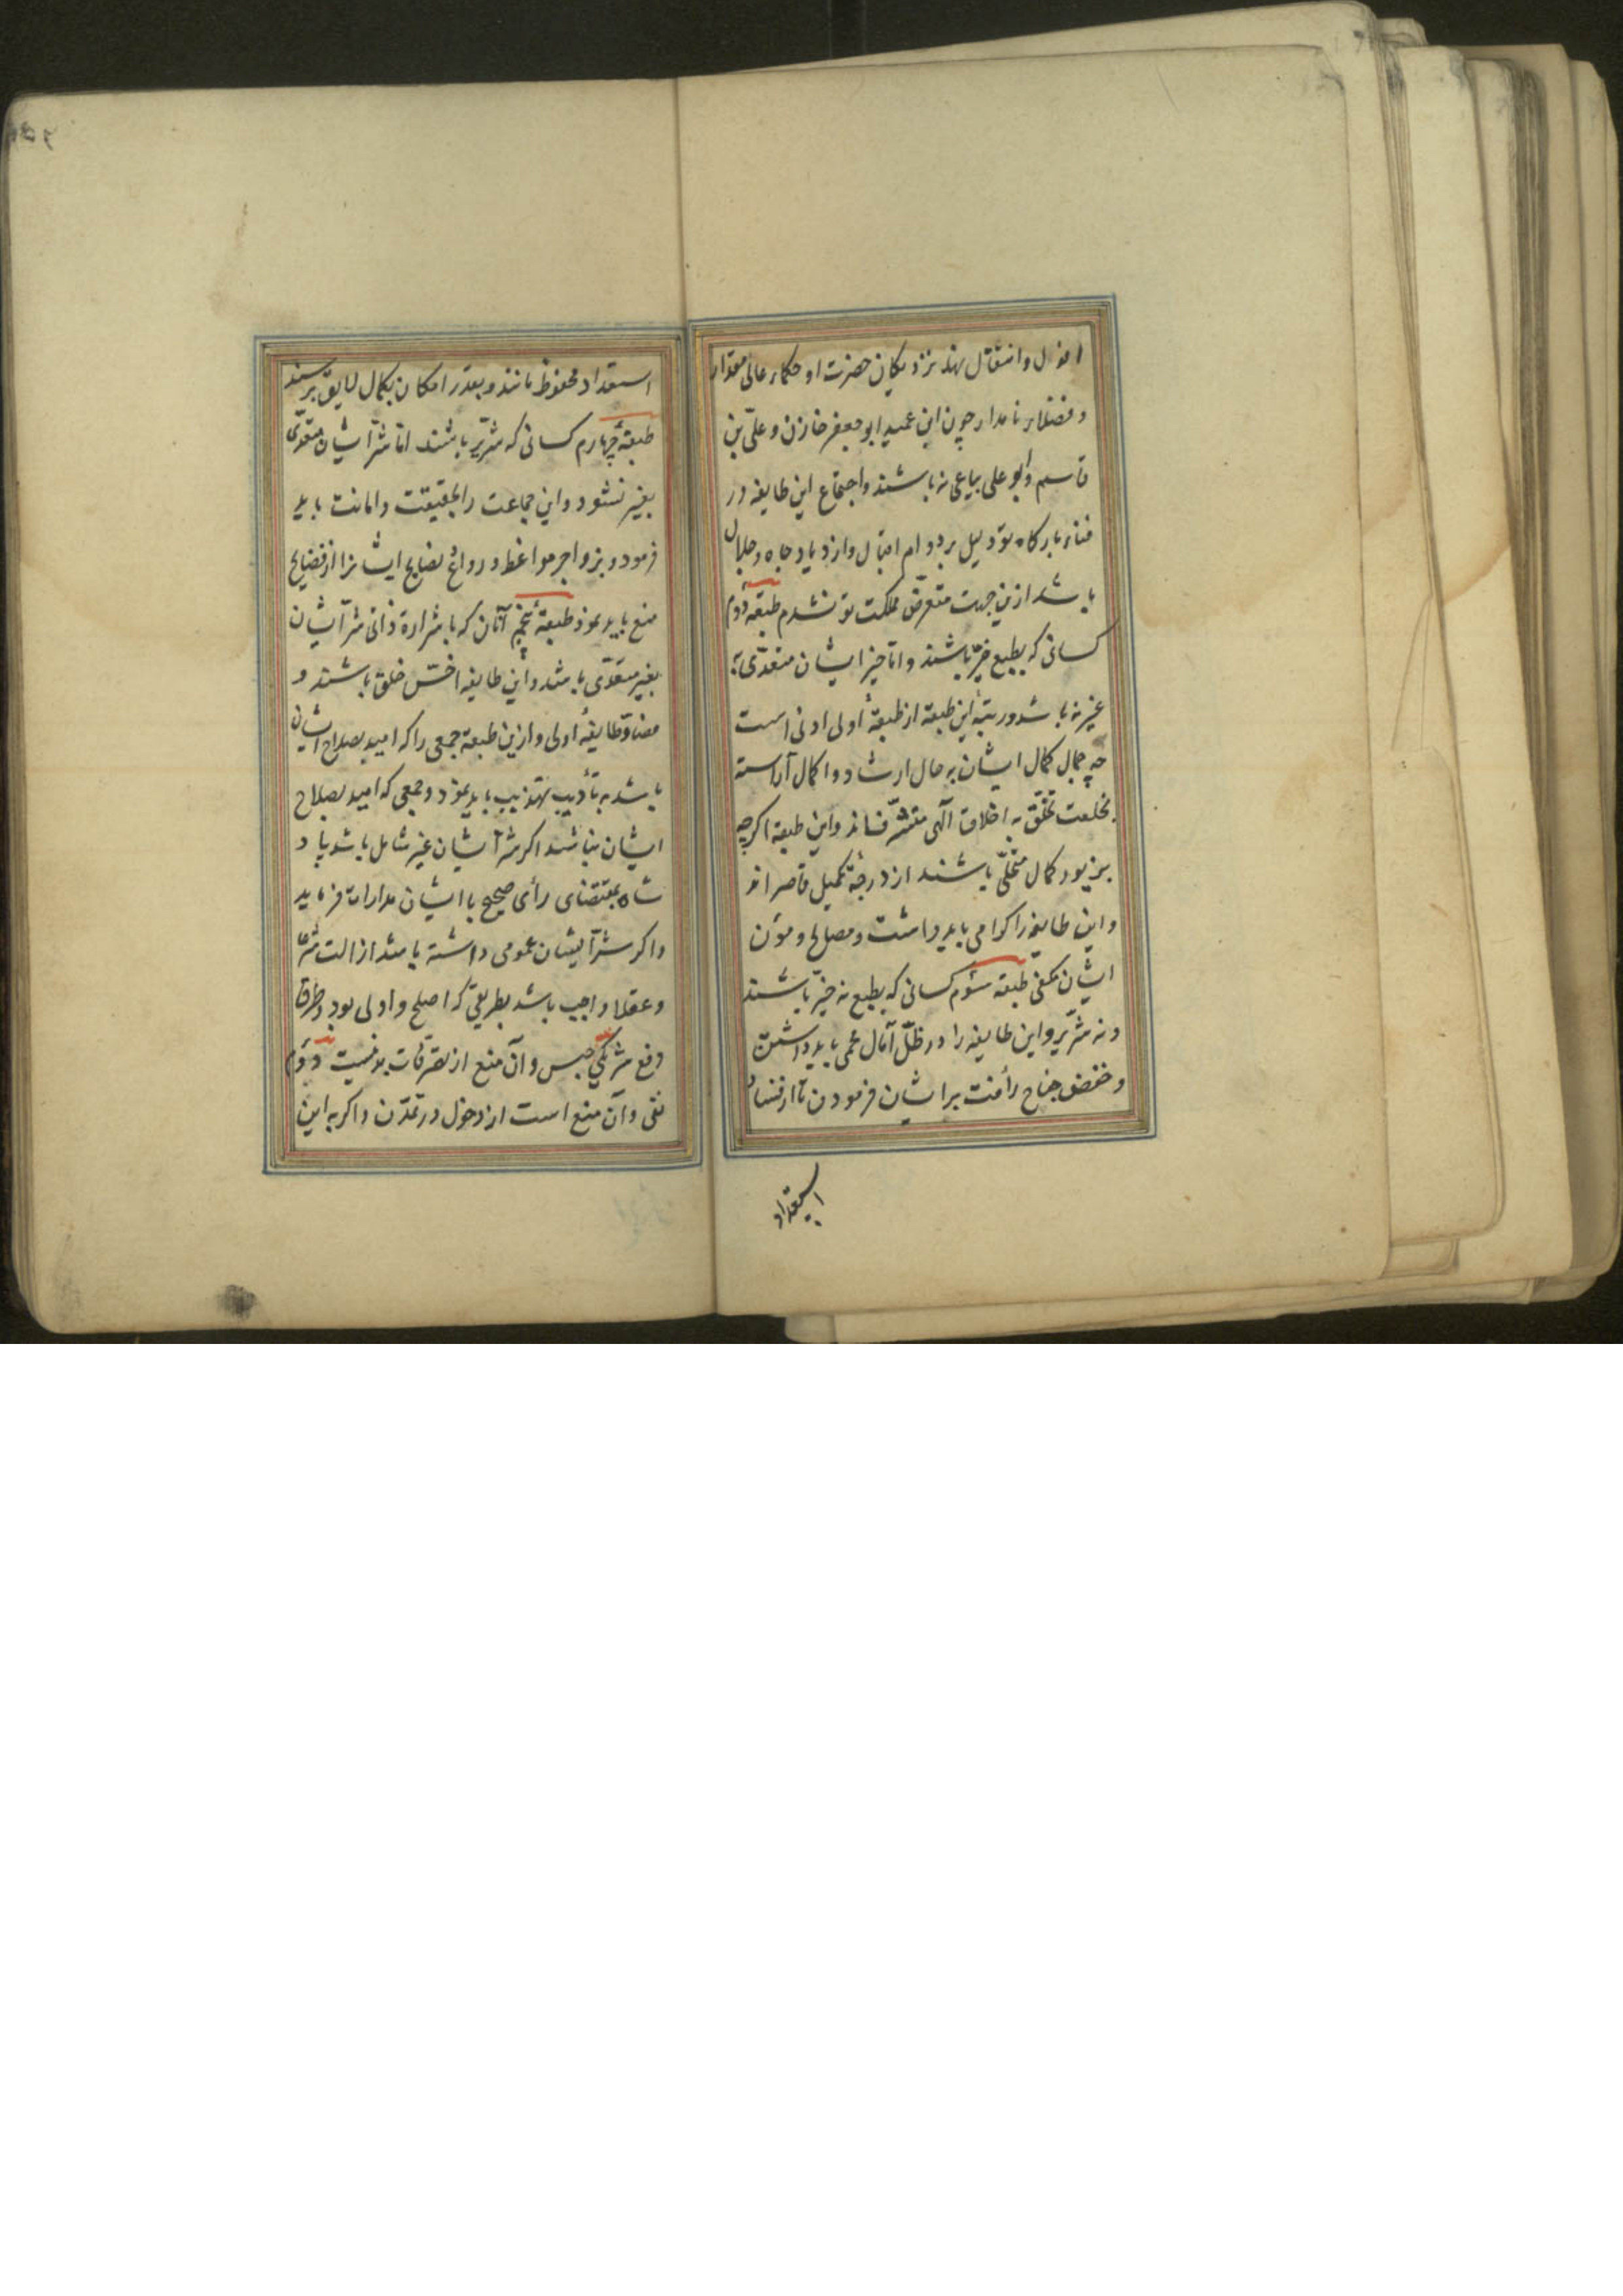 افول و انتقال نهند نزدیکان حضرت او حکماء عالی مقدار
و فضلاء نامدار چون ابن عمید ابو جعفر خازن و علی بن
قاسم و ابو علی بیاعی نه باشند و اجتماع این طایفه در
فناء بارکاه تو دلیل بر دوام اقبال و ازدیاد جاه و جلال
باشد ازین جهت متعرض مملکت تو نشدم طبقه دوم
کسانی که بطبع خیر باشند و اما خیر ایشان متعدی به
غیر نه باشد و رتبهٔ این طبقه از طبقهٔ اولی ادنی است
چه جمال کمال ایشان به حال ارشاد و اکمال آراسته
بخلعت تخلق به اخلاق الهی متشرف‌اند و این طبقه اکرچه
بزیور کمال متحلی باشند از درجهٔ تکمیل قاصراند
و این طایفه را کرامی باید داشت و مصالح و مؤن
ایشان مکفی طبقه سئوم کسانی که بطبع نه خیر باشند
و نه شریر و این طایفه را در ظل آمال محمی باید داشتن
و خفض جناح رأفت بر ایشان فرمودن تا از فساد
استعداد
استعداد محفوظ مانند و بقدر امکان بکمال لایق برسند
طبقهٔ چهارم کسانی که شریر باشند اما شر ایشان متعدی
بغیر نشود و این جماعت را بحقیقت و امانت باید
فرمود و بزواجر مواعظ و روادع نصایح ایشانرا از فضایح
منع باید نمود طبقهٔ پنجم آنان که با شرارة ذاتی شر ایشان
بغیر متعدی باشد و این طایفه اخس خلق باشند و
مضاد طایفهٔ اولی و ازین طبقه جمعی را که امید بصلاح ایشان
باشد به تأدیب تهذیب باید نمود و جمعی که امید بصلاح
ایشان نباشد اکر شر ایشان غیر شامل باشد پاد
شاه بمقتضای رأی صحیح با ایشان مدارات فرماید
و اکر شر ایشان عمومی داشته باشد ازالت شرعا
و عقلا واجب باشد بطریقی که اصلح و اولی بود و طرق
دفع شر یکی حبس و آن منع از تصرفات بدنیست دوم
نفی و آن منع است از دخول در تمدن و اکر به این